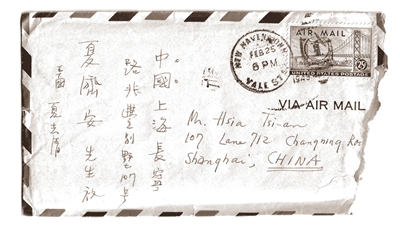 中。國上海長寧
路兆豐別墅107号
夏濟安 先生
夏志清
NEW HAVEN, CONN.
FEB 25
8 PM
YALE STA.
AIR MAIL
UNITED STATES POSTAGE
VIA AIR MAIL
Mr. Hsia Tsi-an
107 Lane 712 Changning Roa
Shanghai, CHINA